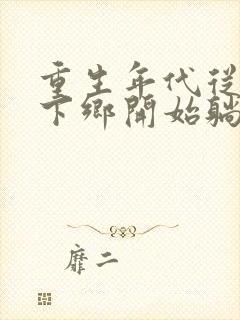 重生年代從
下鄉開始躺
靡二